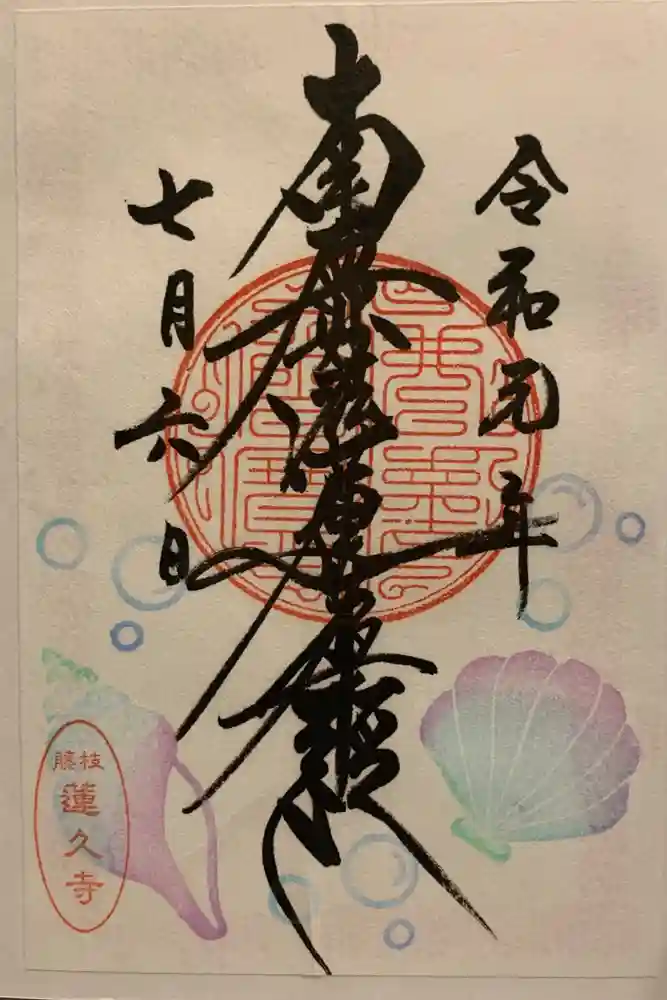 令和元年
南無妙法蓮華経
七月六日
藤枝
蓮久寺